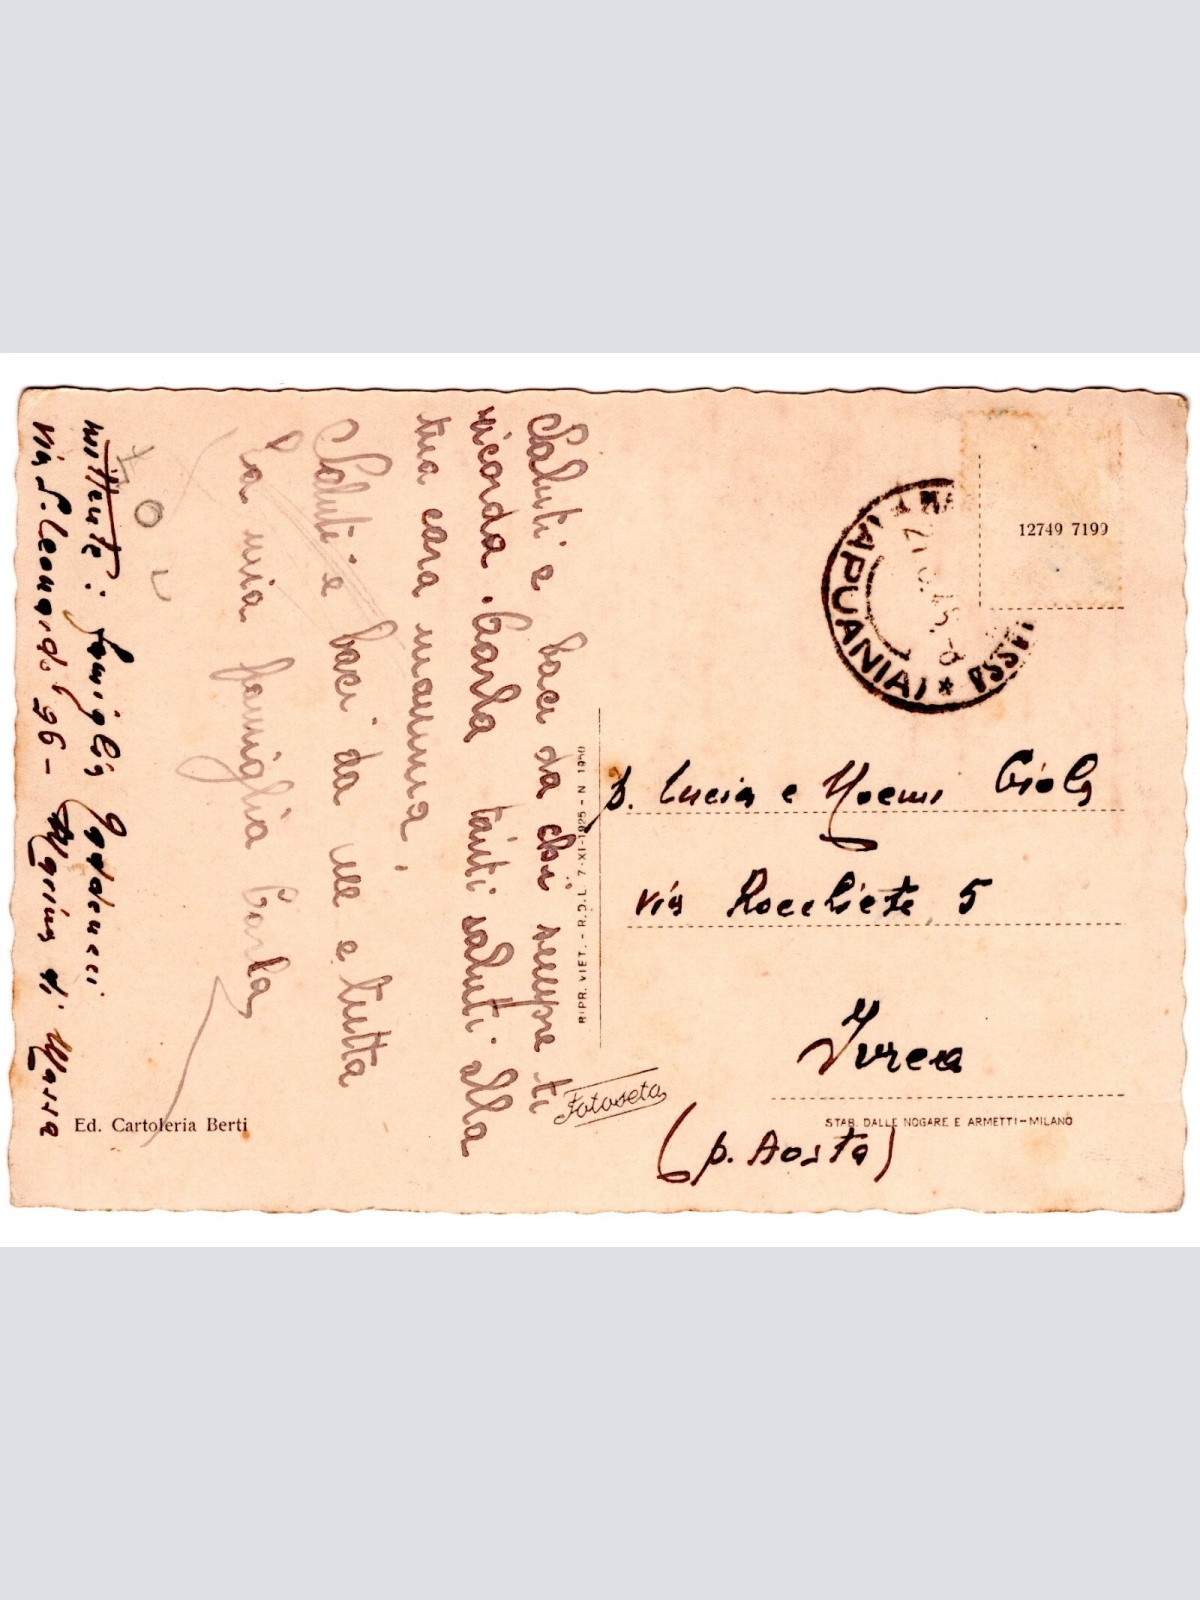 Saluti e baci da chi sempre ti
ricorda. Carla tanti saluti alla
tua cara mamma,
Saluti e baci da me e tutta
la mia famiglia Carla
mittente: famiglia
via S. Leonardo 96 - Marina di Massa
12749 7199
MASSA
(APUANIA)
Lucia e Noemi Giola
via 5
Ivrea
(p. Aosta)
Fotoseta
RIPR. VIET. - R.D.L. 7-XI-1925 - N 1950
STAB. DALLE NOGARE E ARMETTI - MILANO
Ed. Cartoleria Berti